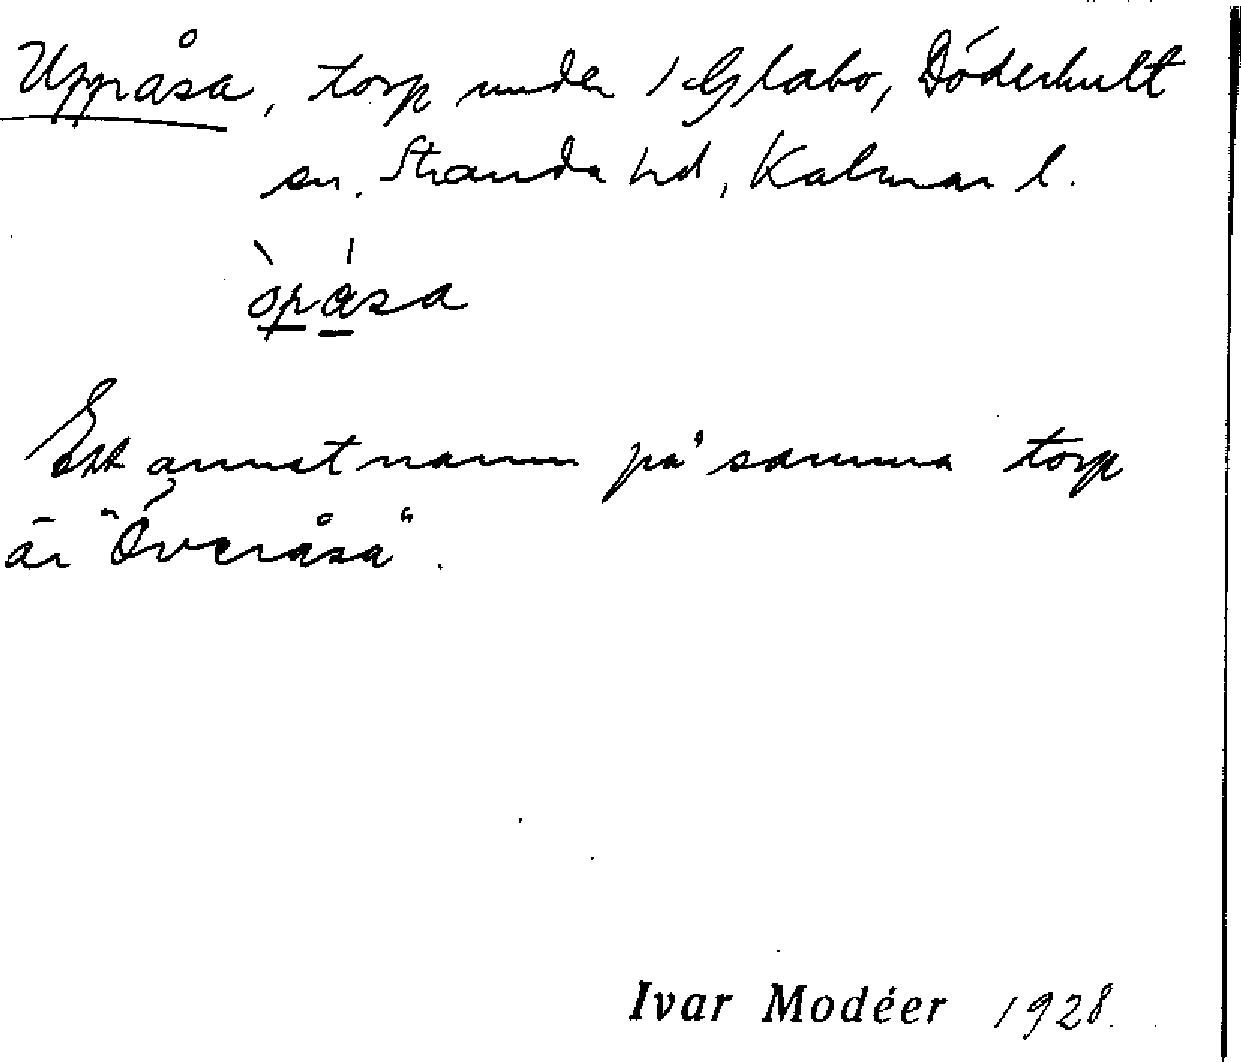 Uppåsa, torp under 1 Glabo, Döderhult
sn. Stranda hd, Kalmar l.
òpása
Ett annat namn på samma torp
är "Överåsa".
Ivar Modéer 1928.